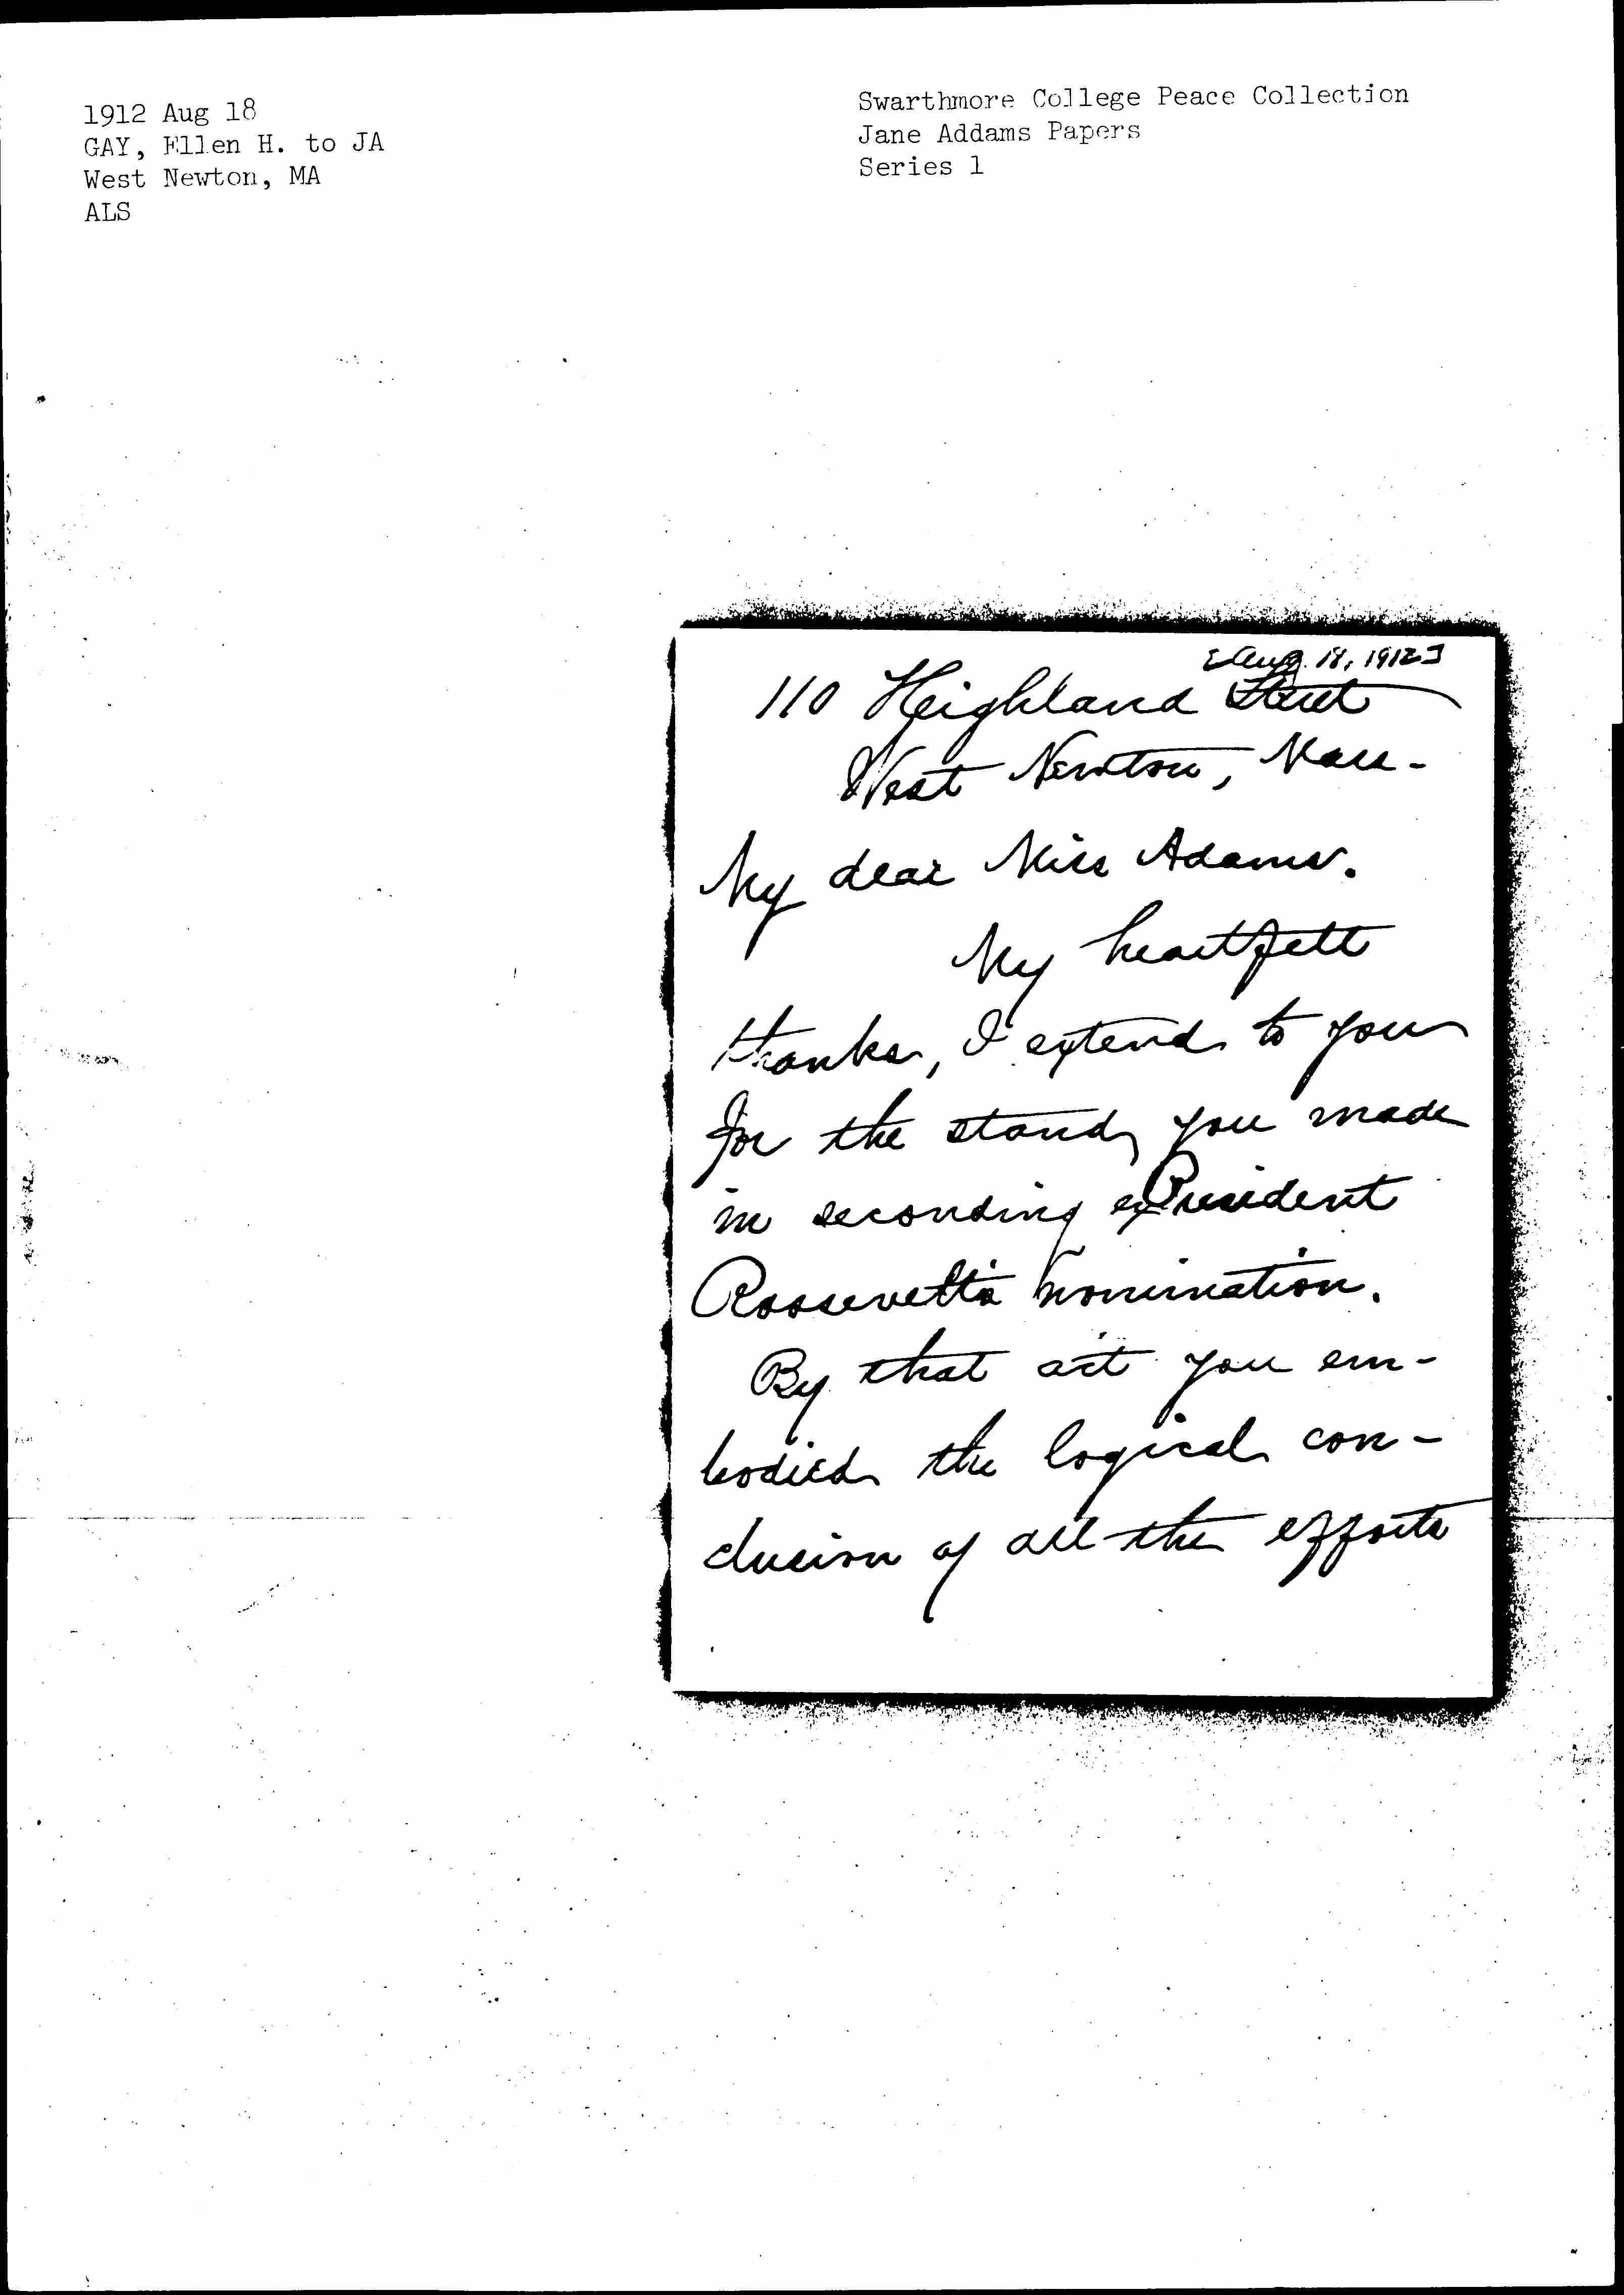 1912 Aug 18
GAY, Ellen H. to JA
West Newton, MA
ALS
Swarthmore College Peace Collection
Jane Addams Papers
Series 1
[Aug. 18, 1912]
110 Heighland Street
West Newton, Mass-
My dear Miss Adams.
My heartfelt
thanks, I extend to you
for the stand, you made
in seconding exPresident
Roosevelt's nomination.
By that act you em-
bodied the logical con-
clusion of all the efforts